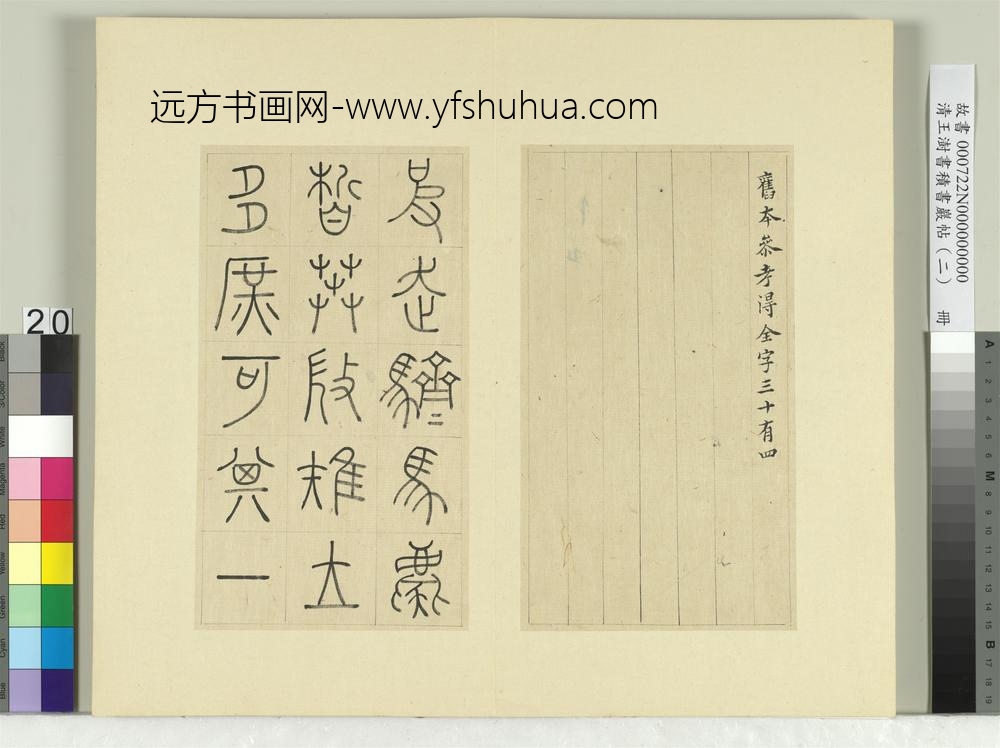 远方书画网-www.yfshuhua.com
故書 000722N000000000
清王澍書積書巖帖（二） 冊
舊本参考得全字三十有四
走馬薦
雉立
多庶可一
20
Black
3/Color
White
Magenta
Red
Yellow
Green
Cyan
Blue
A 1 2 3 4 5 6 M 8 9 10 11 12 13 14 15 B 17 18 19